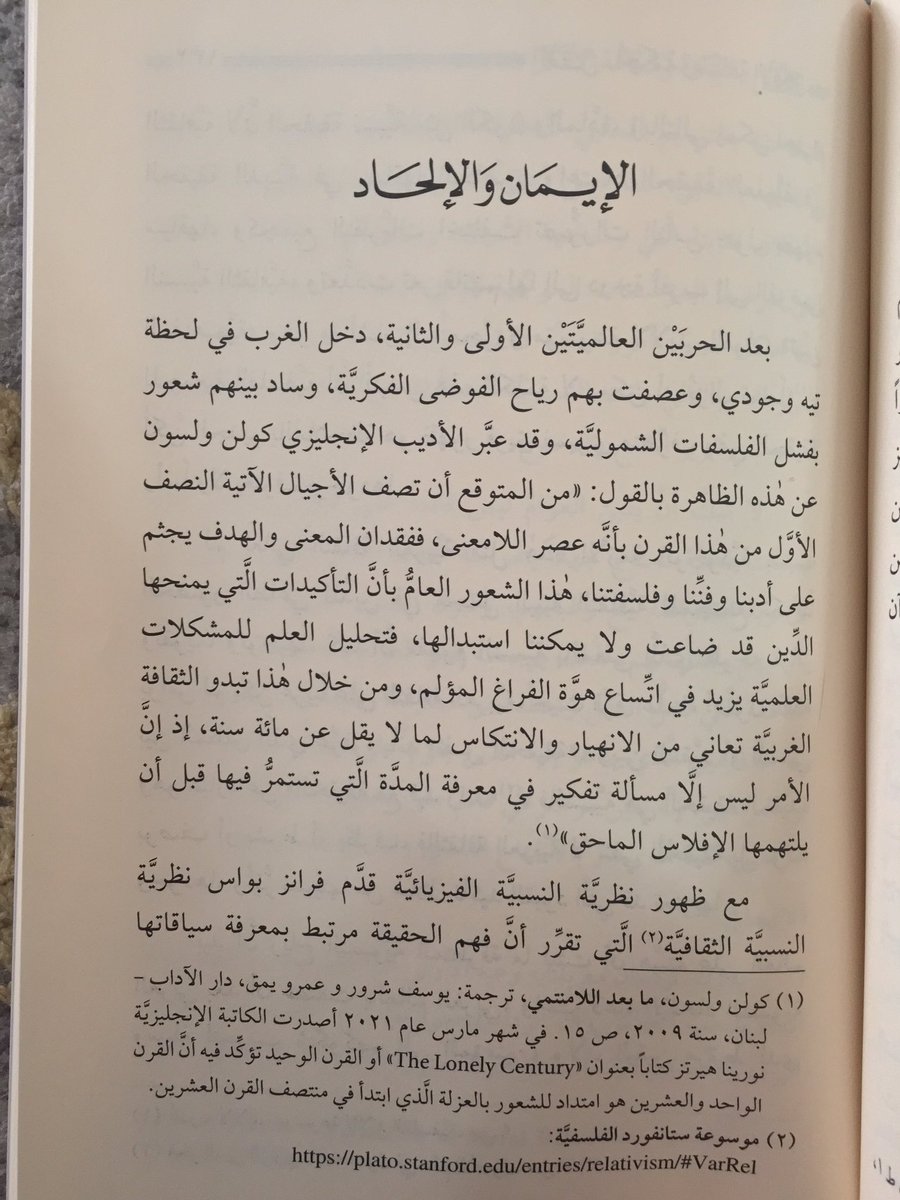 الإيمَان وَالإلحَاد
بعد الحربَيْن العالميَّتَيْن الأولى والثانية، دخل الغرب في لحظة
تيه وجودي، وعصفت بهم رياح الفوضى الفكريَّة، وساد بينهم شعور
بفشل الفلسفات الشموليَّة، وقد عبَّر الأديب الإنجليزي كولن ولسون
عن هٰذه الظاهرة بالقول: «من المتوقع أن تصف الأجيال الآتية النصف
الأوَّل من هٰذا القرن بأنَّه عصر اللامعنى، ففقدان المعنى والهدف يجثم
على أدبنا وفنِّنا وفلسفتنا، هٰذا الشعور العامُّ بأنَّ التأكيدات الَّتي يمنحها
الدِّين قد ضاعت ولا يمكننا استبدالها، فتحليل العلم للمشكلات
العلميَّة يزيد في اتِّساع هوَّة الفراغ المؤلم، ومن خلال هٰذا تبدو الثقافة
الغربيَّة تعاني من الانهيار والانتكاس لما لا يقل عن مائة سنة، إذ إنَّ
الأمر ليس إلَّا مسألة تفكير في معرفة المدَّة الَّتي تستمرُّ فيها قبل أن
يلتهمها الإفلاس الماحق»(١).
مع ظهور نظريَّة النسبيَّة الفيزيائيَّة قدَّم فرانز بواس نظريَّة
النسبيَّة الثقافيَّة(٢) الَّتي تقرِّر أنَّ فهم الحقيقة مرتبط بمعرفة سياقاتها
(١) كولن ولسون، ما بعد اللامنتمي، ترجمة: يوسف شرور و عمرو يمق، دار الآداب –
لبنان، سنة ٢٠٠٩، ص ١٥. في شهر مارس عام ٢٠٢١ أصدرت الكاتبة الإنجليزيَّة
نورينا هيرتز كتاباً بعنوان «The Lonely Century» أو القرن الوحيد تؤكِّد فيه أنَّ القرن
الواحد والعشرين هو امتداد للشعور بالعزلة الَّذي ابتدأ في منتصف القرن العشرين.
(٢) موسوعة ستانفورد الفلسفيَّة:
https://plato.stanford.edu/entries/relativism/#VarRel